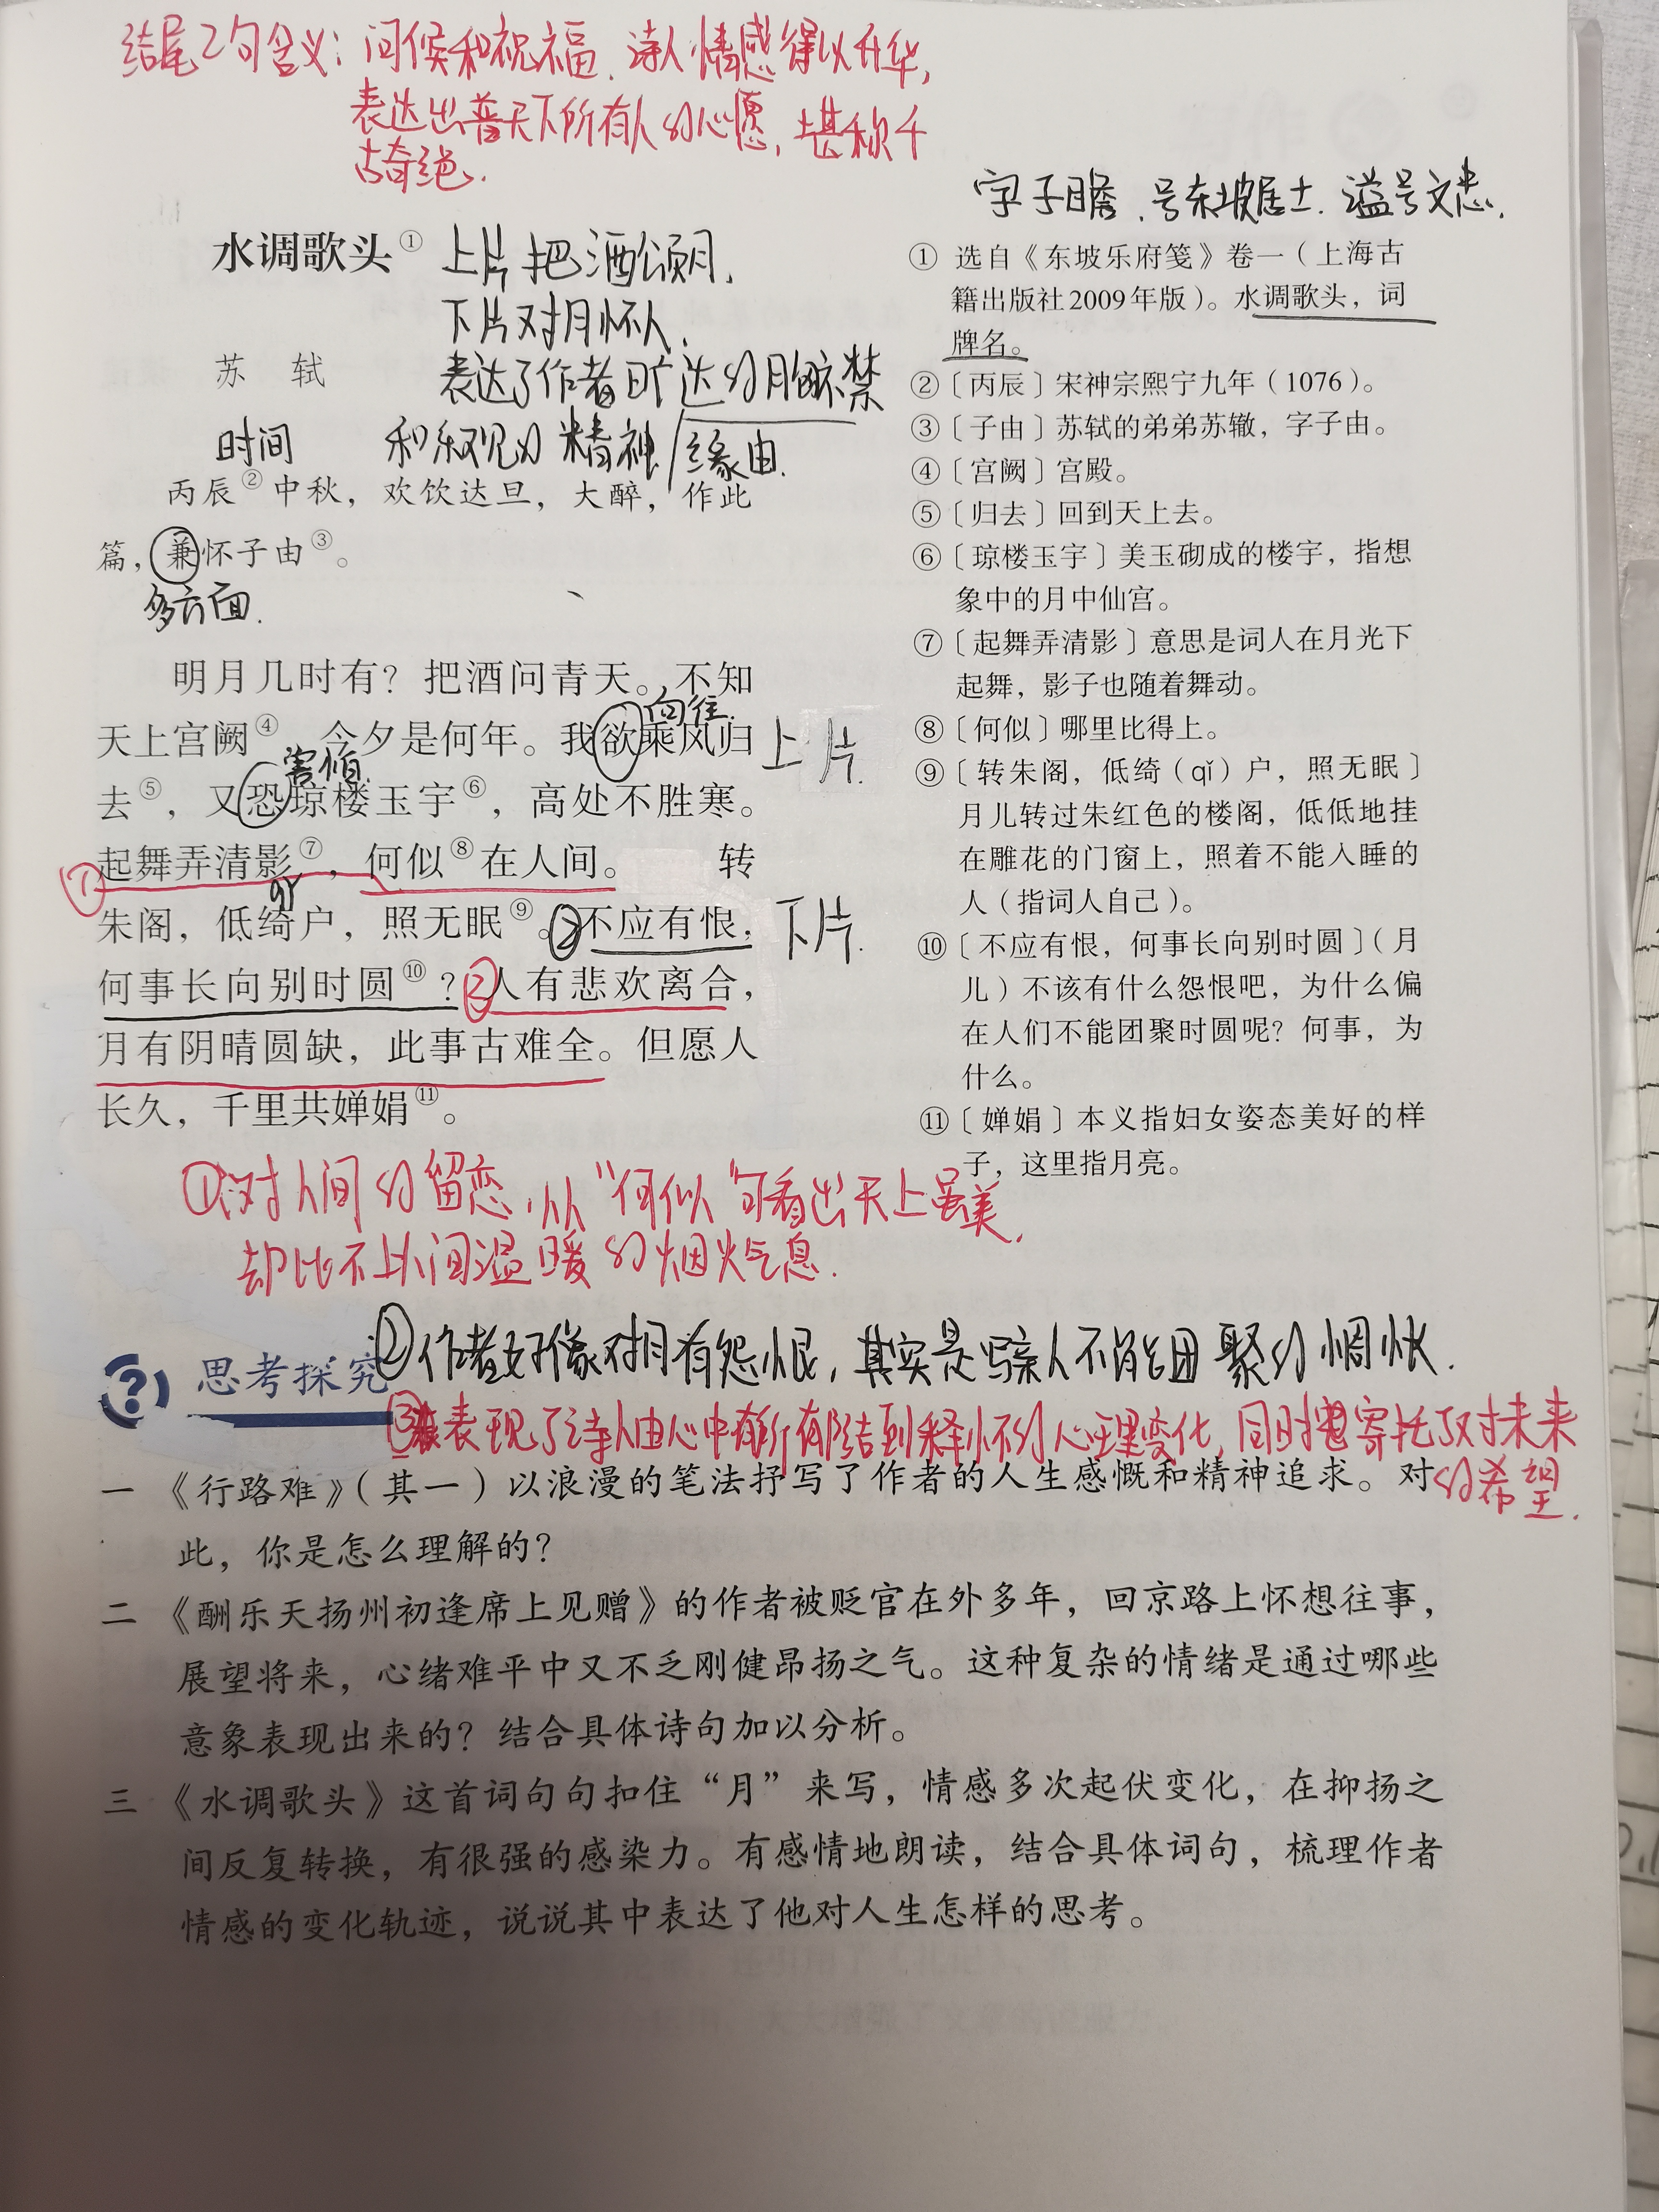 结尾2句含义：问候和祝福、诗人情感得以升华，
表达出普天下所有人的心愿，堪称千
古奇绝.
字子瞻、号东坡居士.谥号文忠.
水调歌头①
上片把酒颂月，
下片对月怀人，
苏 轼
表达了作者旷达的胸襟
时间
和乐观的精神
缘由.
丙辰②中秋，欢饮达旦，大醉，作此
篇，兼怀子由③。
多方面.
明月几时有？把酒问青天。不知
向往.
天上宫阙④，今夕是何年。我欲乘风归
害怕.
去⑤，又恐琼楼玉宇⑥，高处不胜寒。
上片.
①起舞弄清影⑦，何似⑧在人间。 转
朱阁，低绮户，照无眠⑨。②不应有恨，
下片.
何事长向别时圆⑩？②人有悲欢离合，
月有阴晴圆缺，此事古难全。但愿人
长久，千里共婵娟⑪。
① 选自《东坡乐府笺》卷一（上海古
籍出版社2009年版）。水调歌头，词
牌名。
②〔丙辰〕宋神宗熙宁九年（1076）。
③〔子由〕苏轼的弟弟苏辙，字子由。
④〔宫阙〕宫殿。
⑤〔归去〕回到天上去。
⑥〔琼楼玉宇〕美玉砌成的楼宇，指想
象中的月中仙宫。
⑦〔起舞弄清影〕意思是词人在月光下
起舞，影子也随着舞动。
⑧〔何似〕哪里比得上。
⑨〔转朱阁，低绮（qǐ）户，照无眠〕
月儿转过朱红色的楼阁，低低地挂
在雕花的门窗上，照着不能入睡的
人（指词人自己）。
⑩〔不应有恨，何事长向别时圆〕（月
儿）不该有什么怨恨吧，为什么偏
在人们不能团聚时圆呢？何事，为
什么。
⑪〔婵娟〕本义指妇女姿态美好的样
子，这里指月亮。
①对人间的留恋，从“何似”句看出天上虽美，
却比不上人间温暖的烟火气息.
②作者好像对月有怨恨，其实是写亲人不能团聚的惆怅.
思考探究
③表现了诗人由心中有所郁结到释怀的心理变化，同时寄托了对未来
的希望.
一 《行路难》（其一）以浪漫的笔法抒写了作者的人生感慨和精神追求。对
此，你是怎么理解的？
二 《酬乐天扬州初逢席上见赠》的作者被贬官在外多年，回京路上怀想往事，
展望将来，心绪难平中又不乏刚健昂扬之气。这种复杂的情绪是通过哪些
意象表现出来的？结合具体诗句加以分析。
三 《水调歌头》这首词句句扣住“月”来写，情感多次起伏变化，在抑扬之
间反复转换，有很强的感染力。有感情地朗读，结合具体词句，梳理作者
情感的变化轨迹，说说其中表达了他对人生怎样的思考。